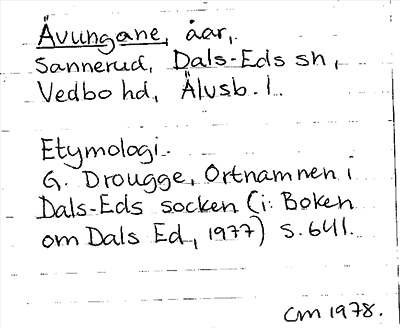 Ävungane, åar,
Sannerud, Dals-Eds sn,
Vedbo hd, Älvsb. l.
Etymologi.
G. Drougge, Ortnamnen i
Dals-Eds socken (i: Boken
om Dals Ed, 1977) s. 641.
CM 1978.